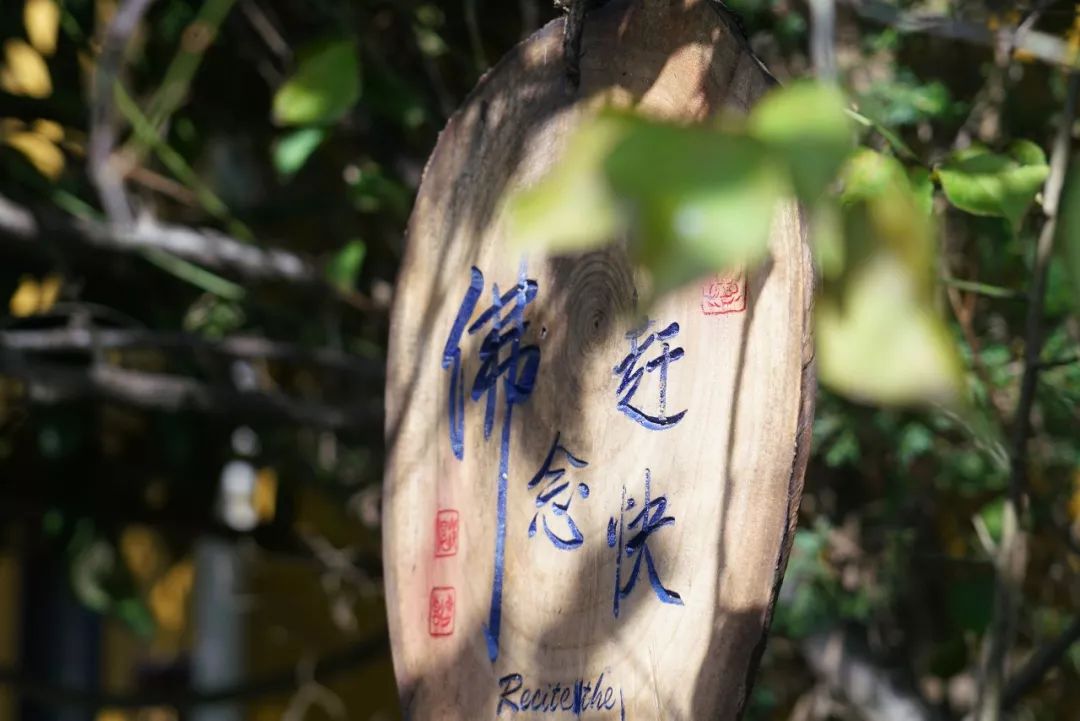 赶快
念
佛
Recite the